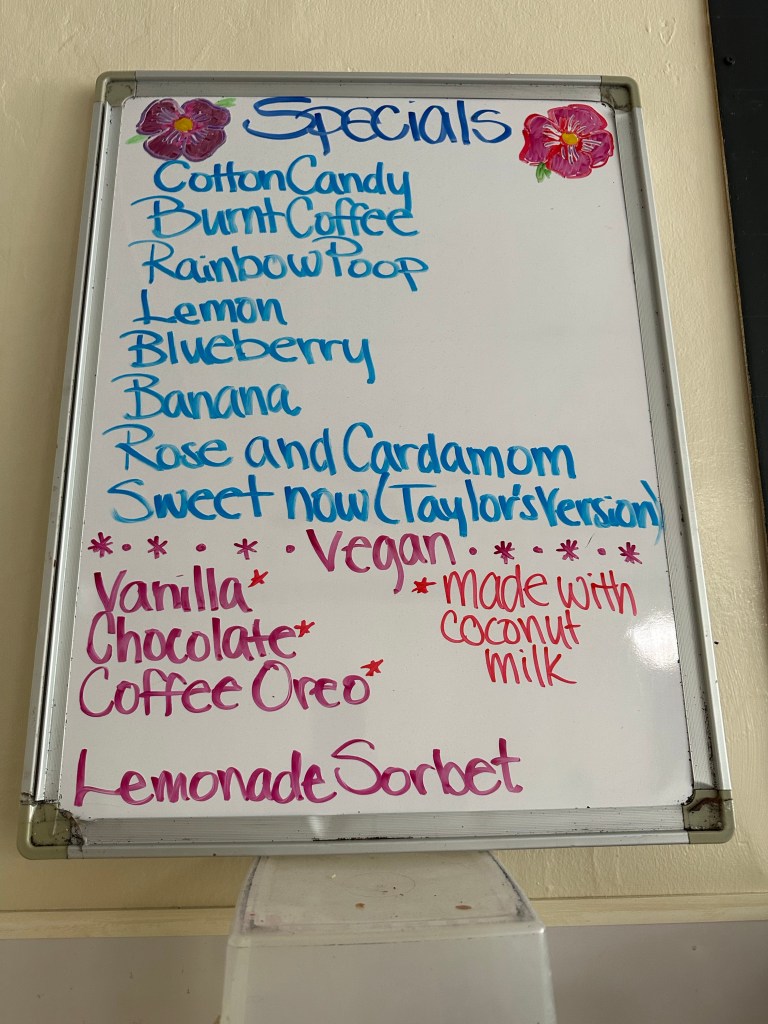 Specials
Cotton Candy
Burnt Coffee
Rainbow Poop
Lemon
Blueberry
Banana
Rose and Cardamom
Sweet now (Taylor's Version)
* · * · * · Vegan · * · * · *
Vanilla*
Chocolate*
Coffee Oreo*
* made with
coconut
milk
Lemonade Sorbet